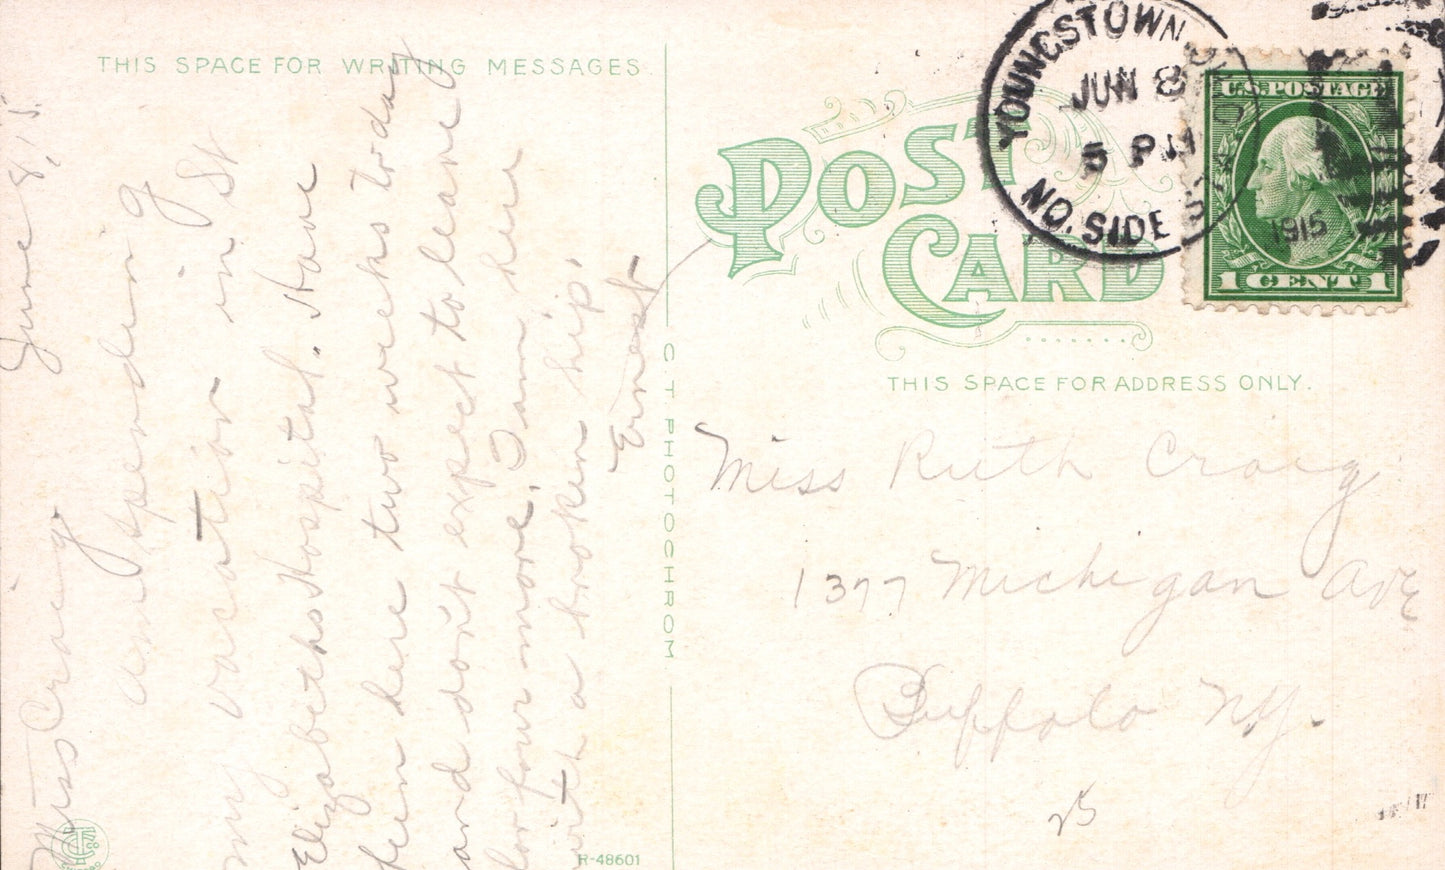 THIS SPACE FOR WRITING MESSAGES.
June 8, 15.
Miss Craig
am spending
my vacation in St
Elizabeths Hospital. Have
been here two weeks today
and don't expect to leave
for four more. I am here
with a broken hip.
Ernest
R-48601
C T PHOTOCHROM
POST CARD
THIS SPACE FOR ADDRESS ONLY.
YOUNGSTOWN OHIO
JUN 8
5 PM
1915
NO. SIDE
U.S. POSTAGE
1 CENT 1
Miss Ruth Craig
1377 Michigan Ave
Buffalo N.Y.